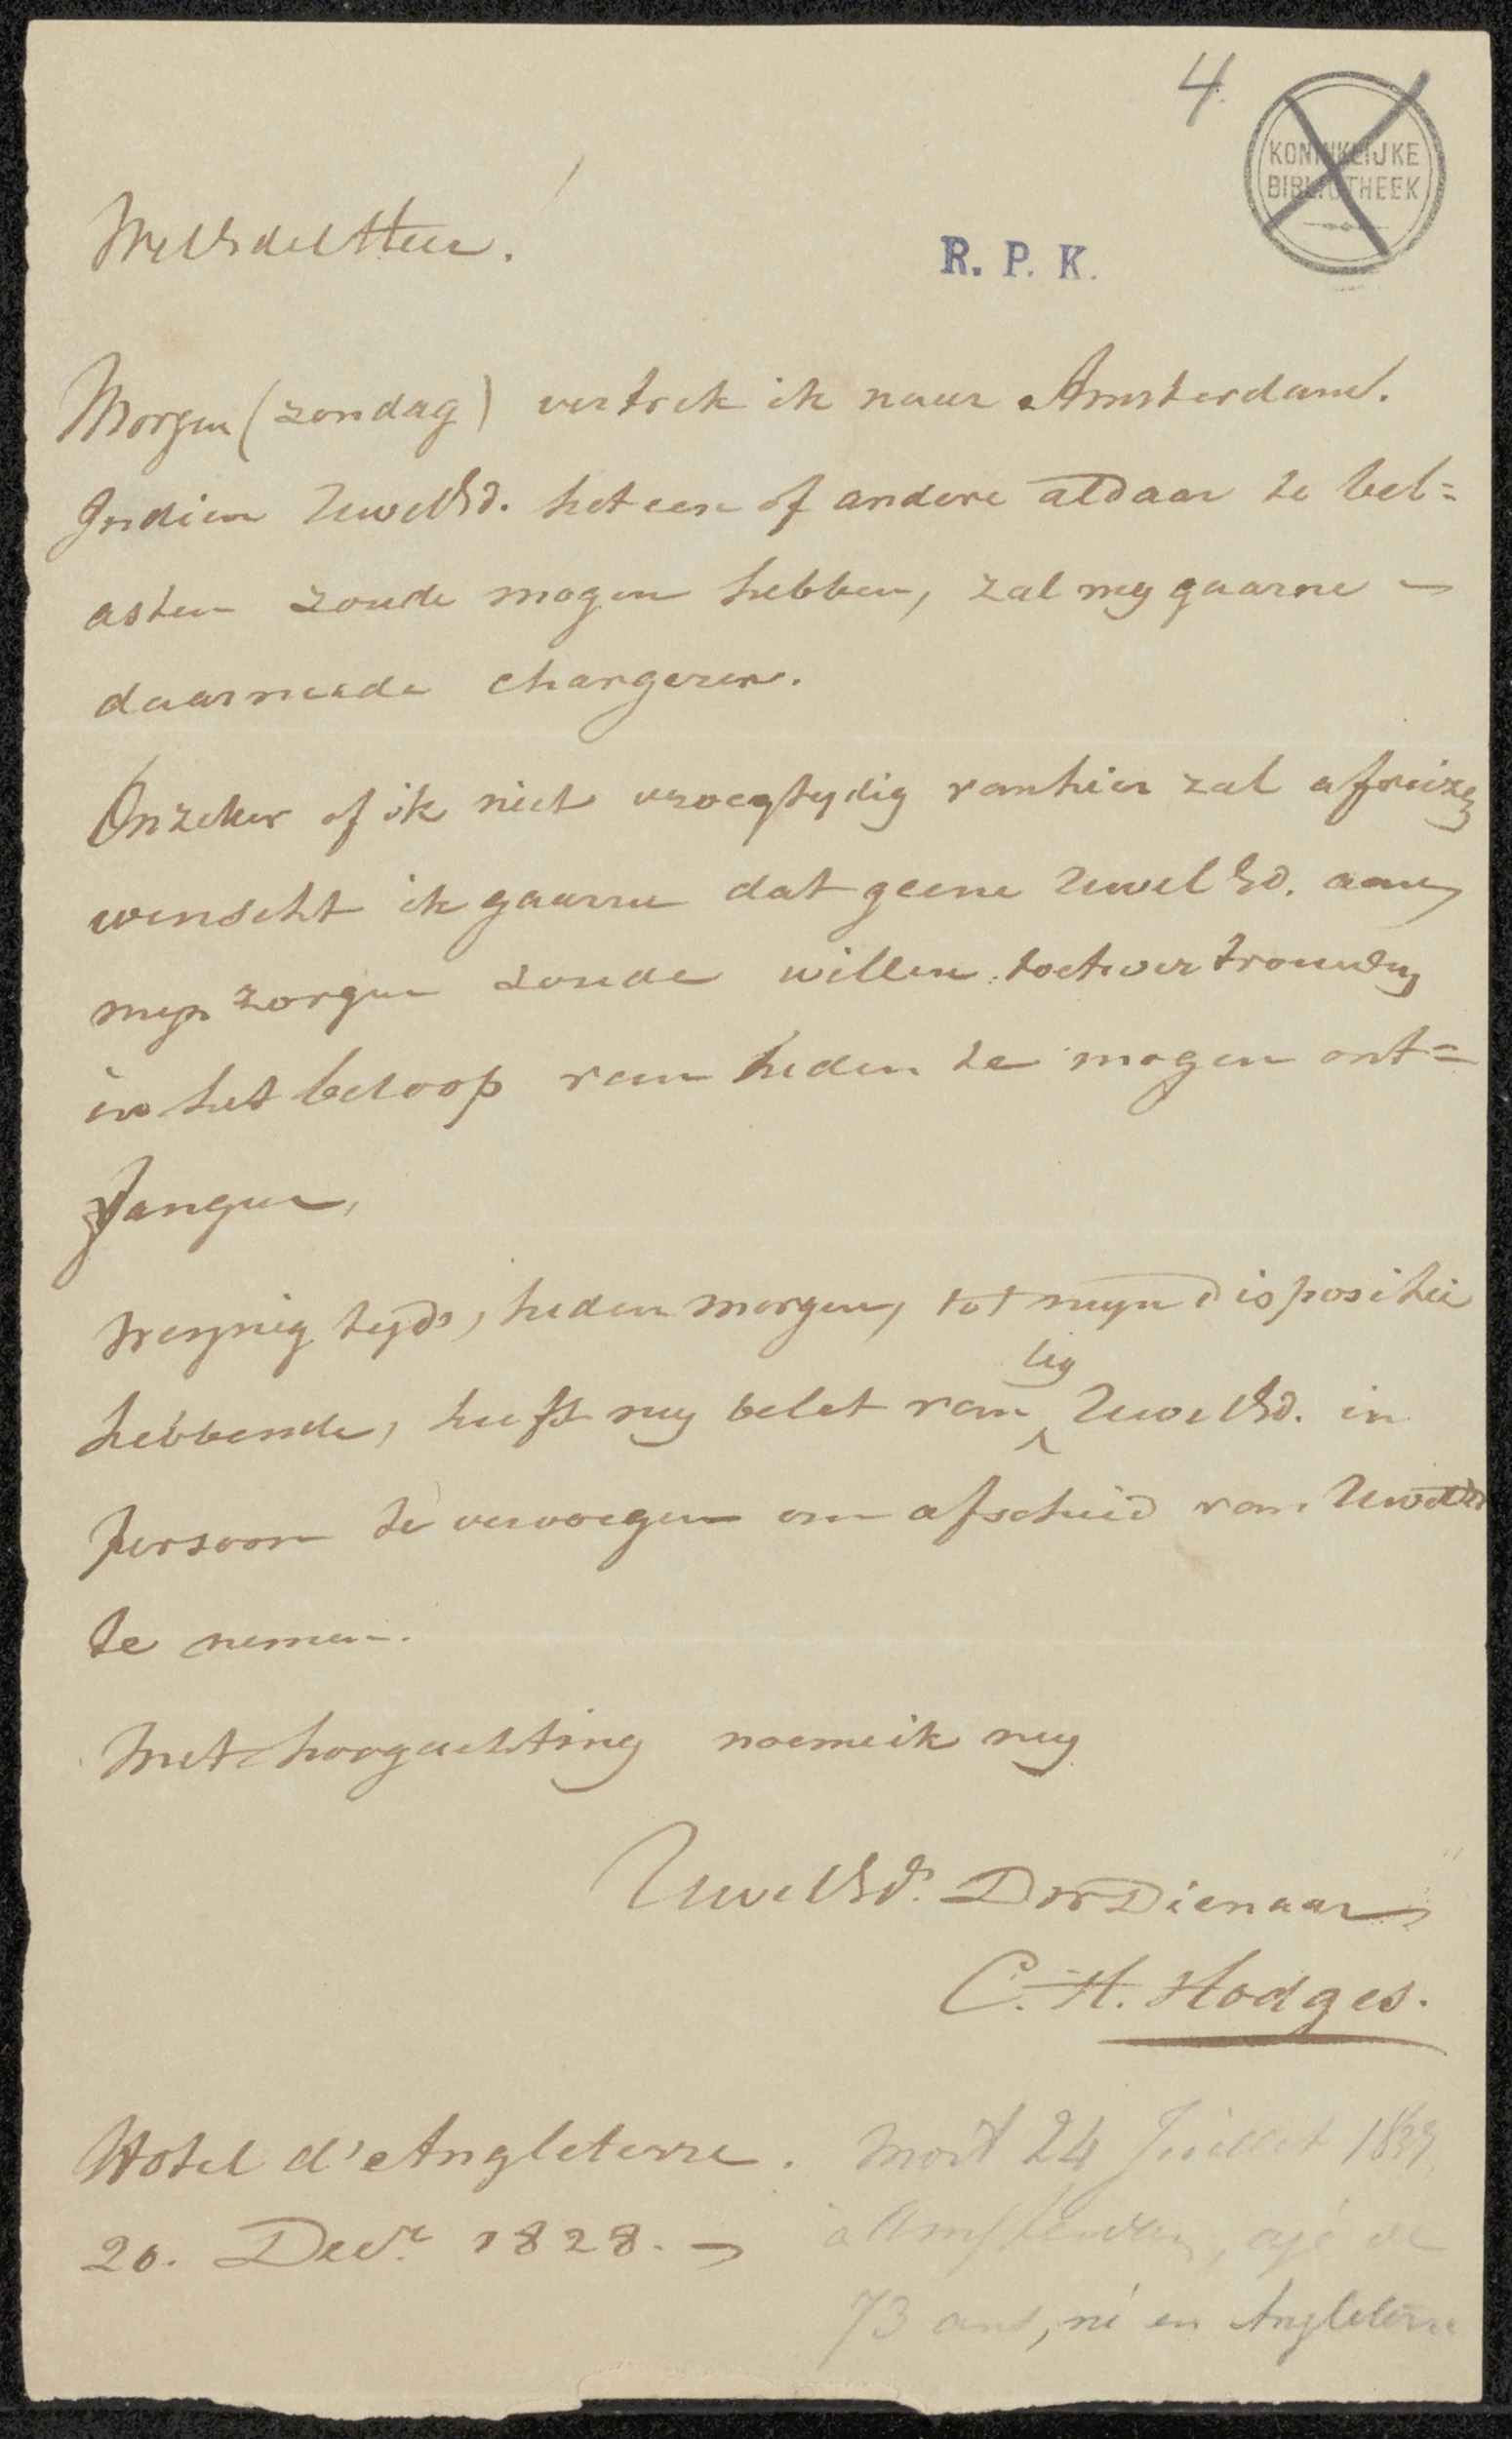 4.
KONINKLIJKE
BIBLIOTHEEK
WelEdel Heer!
R. P. K.
Morgen (zondag) vertrek ik naar Amsterdam.
Indien UwelEd. het een of andere aldaar te bel=
asten zoude mogen hebben, zal my gaarne
daarmeede chargeren.
Onzeker of ik niet vroegtydig van hier zal afreizen
wenscht ik gaarne dat geene UwelEd. aan
myn zorgen zoude willen toetvertrouwen
in het beloop van heden te mogen ont=
fangen,
Weynig tyds, heden morgen, tot myn dispositie
hebbende, heeft my belet van by UwelEd. in
persoon te vervoegen om afscheid van UwelEd
te nemen.
Met hoogachting noeme ik my
UwelEd. DW Dienaar
C. H. Hodges.
Hotel d'Angleterre.
20. Decr. 1828.
Mort 24 Juillet 1837
à Amsterdam, agé de
73 ans, né en Angleterre